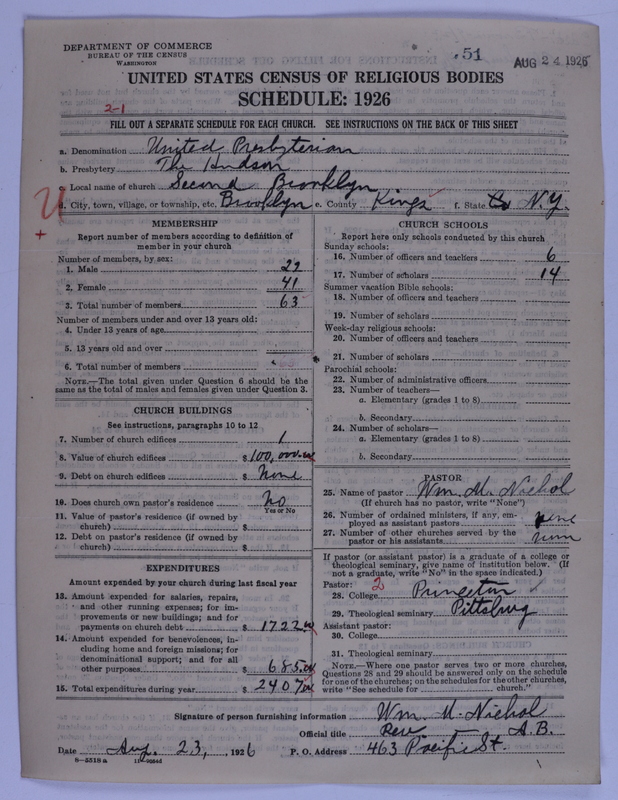 DEPARTMENT OF COMMERCE
BUREAU OF THE CENSUS
WASHINGTON
51
AUG 24 1926
UNITED STATES CENSUS OF RELIGIOUS BODIES
SCHEDULE: 1926
2-1
FILL OUT A SEPARATE SCHEDULE FOR EACH CHURCH. SEE INSTRUCTIONS ON THE BACK OF THIS SHEET
a. Denomination United Presbyterian
b. Presbytery The Hudson
c. Local name of church Second Brooklyn
d. City, town, village, or township, etc. Brooklyn e. County Kings f. State N.Y.
MEMBERSHIP
Report number of members according to definition of
member in your church
Number of members, by sex:
1. Male 22
2. Female 41
3. Total number of members 63
Number of members under and over 13 years old:
4. Under 13 years of age
5. 13 years old and over
6. Total number of members
NOTE.—The total given under Question 6 should be the
same as the total of males and females given under Question 3.
CHURCH BUILDINGS
See instructions, paragraphs 10 to 12
7. Number of church edifices 1
8. Value of church edifices $ 100,000.00
9. Debt on church edifices $ None
10. Does church own pastor's residence No
Yes or No
11. Value of pastor's residence (if owned by
church) $
12. Debt on pastor's residence (if owned by
church) $
EXPENDITURES
Amount expended by your church during last fiscal year
13. Amount expended for salaries, repairs,
and other running expenses; for im-
provements or new buildings; and for
payments on church debt $ 1722.00
14. Amount expended for benevolences, in-
cluding home and foreign missions; for
denominational support; and for all
other purposes $ 685.00
15. Total expenditures during year $ 2407.00
CHURCH SCHOOLS
Report here only schools conducted by this church
Sunday schools:
16. Number of officers and teachers 6
17. Number of scholars 14
Summer vacation Bible schools:
18. Number of officers and teachers
19. Number of scholars
Week-day religious schools:
20. Number of officers and teachers
21. Number of scholars
Parochial schools:
22. Number of administrative officers
23. Number of teachers—
a. Elementary (grades 1 to 8)
b. Secondary
24. Number of scholars—
a. Elementary (grades 1 to 8)
b. Secondary
PASTOR
25. Name of pastor Wm. M. Nichol
(If church has no pastor, write "None")
26. Number of ordained ministers, if any, em-
ployed as assistant pastors none
27. Number of other churches served by the
pastor or his assistants none
If pastor (or assistant pastor) is a graduate of a college or
theological seminary, give name of institution below. (If
not a graduate, write "No" in the space indicated.)
Pastor: 2
28. College Princeton
29. Theological seminary Pittsburg
Assistant pastor:
30. College
31. Theological seminary
NOTE.—Where one pastor serves two or more churches,
Questions 28 and 29 should be answered only on the schedule
for one of the churches; on the schedules for the other churches,
write "See schedule for church."
Signature of person furnishing information Wm. M. Nichol
Official title Rev. — A.B.
Date Aug. 23, 1926 P. O. Address 463 Pacific St.
8—5318a